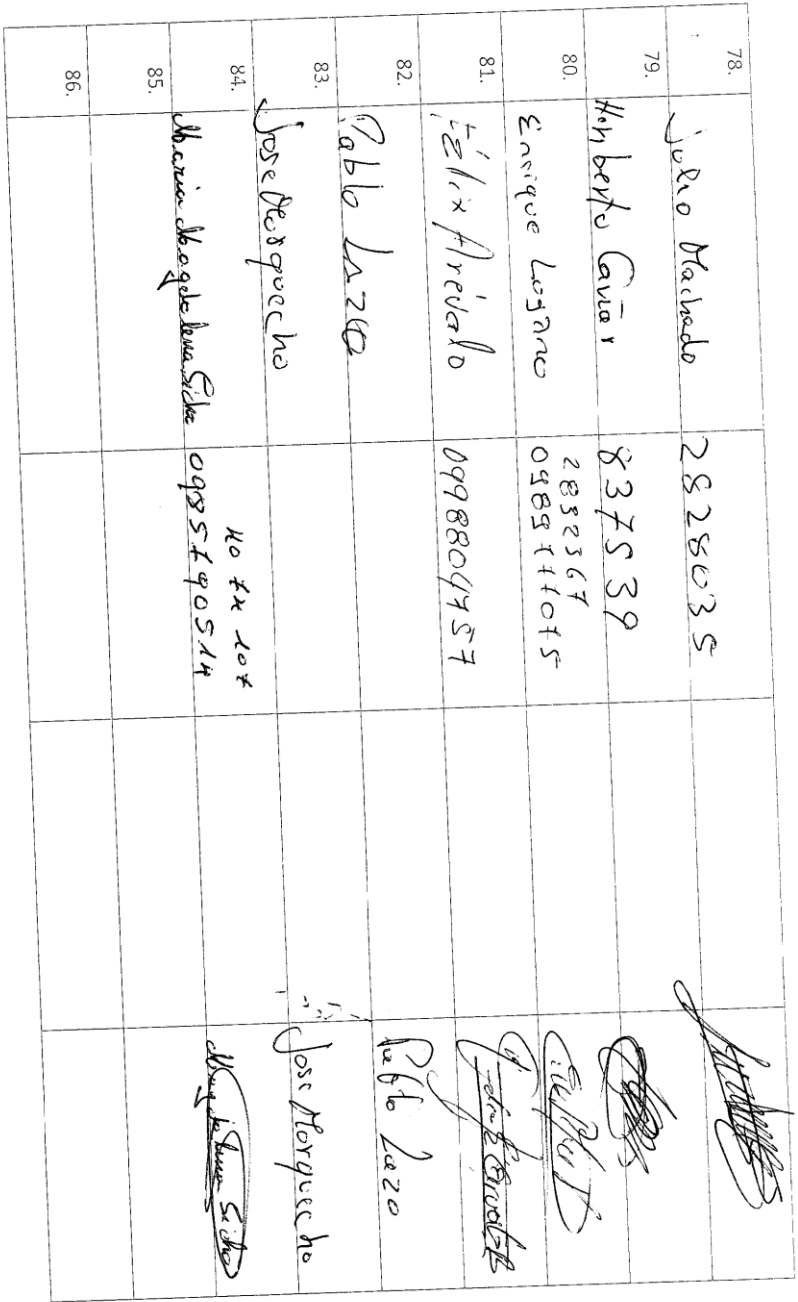 78. Julio Machado 2828035
79. Humberto Cañar 837539
80. Enrique Lozano 2892367
0989777075
81. Félix Arévalo 0998804757
82. Pablo Lazo Pablo Lazo
83. Jose Morquecho Jose Morquecho
84. Maria Magdalena Sicha 4074107
0985790514 Magdalena Sicha
85.
86.